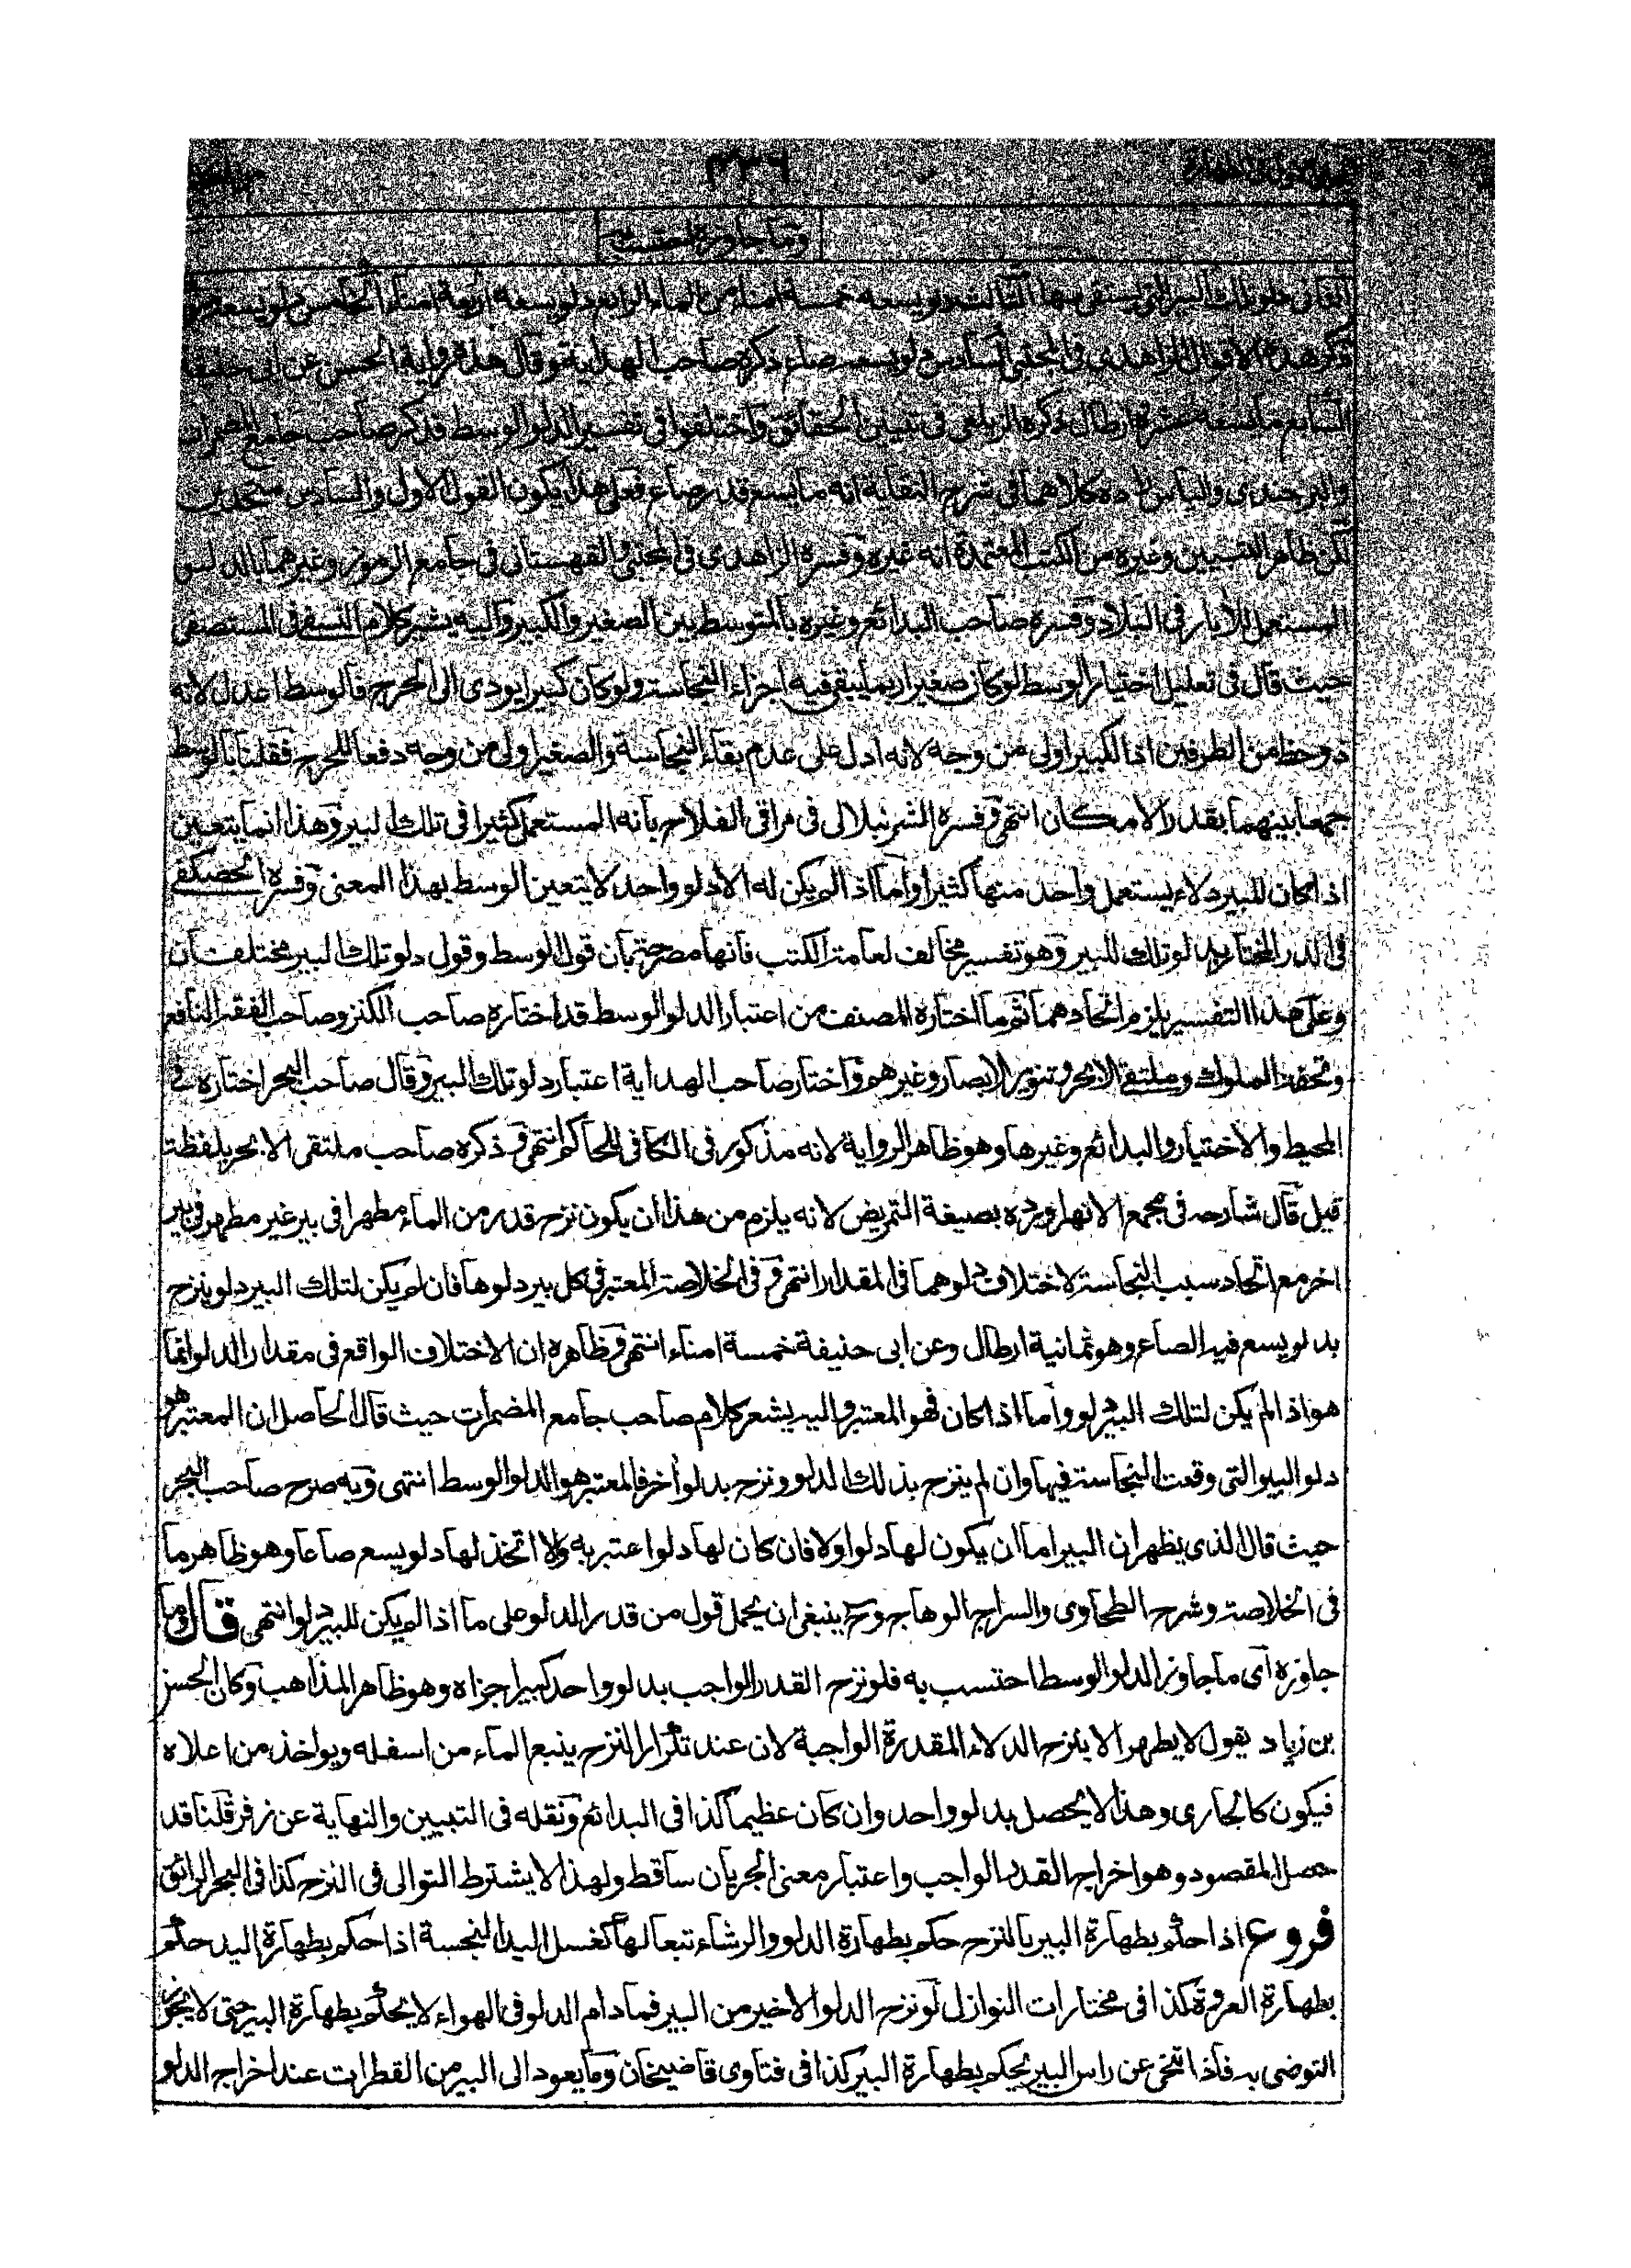 ٤٣٦
وما جاوزه احتسب
الثاني دلو تلك البير التي يستقى بها الثالث دلو يسعه خمسة امناء من الماء الرابع دلو يسعه اربعة امناء الخامس دلو يسعه
ذكر هذه الاقوال الزاهدى في المجتبى السادس دلو يسعه صاع ذكره صاحب الهداية وقال هذا رواية الحسن عن ابى حنيفة
السابع ما يسعه عشرة ارطال ذكره الزيلعى في تبيين الحقائق واختلفوا في تفسير الدلو الوسط فذكر صاحب جامع المضمرات
والبرجندى والياس زاده كلاهما في شرح النقاية انه ما يسع قدر صاع فعلى هذا يكون القول الاول والسادس متحدين
لكن ظاهر التبيين وغيره من الكتب المعتمدة انه غيره وفسره الزاهدى في المجتبى والقهستانى في جامع الرموز وغيرهما بالدلو
المستعمل للأبار في البلاد وفسره صاحب البدائع وغيره بالمتوسط بين الصغير والكبير واليه يشير كلام النسفى في المستصفى
حيث قال في تعليل اختيار الوسط لو كان صغيرا ربما يبقى فيه اجزاء النجاسة ولو كان كبيرا يودى الى الحرج فالوسط اعدل لانه
ذو حظ من الطرفين اذ الكبير اولى من وجه لانه ادل على عدم بقاء النجاسة والصغير اولى من وجه دفعا للحرج فقلنا بالوسط
جمعا بينهما بقدر الامكان انتهى وفسره الشرنبلالى في مراقى الفلاح بأنه المستعمل كثيرا في تلك البير وهذا انما يتعين
اذا كان للبير دلاء يستعمل واحد منها كثيرا واما اذا لم يكن له الا دلو واحد لا يتعين الوسط بهذا المعنى وفسره الحصكفى
في الدر المختار بدلو تلك البير وهو تفسير مخالف لعامة الكتب فانها مصرحة بان قول الوسط وقول دلو تلك البير مختلفان
وعلى هذا التفسير يلزم اتحادهما ثم ما اختاره المصنف من اعتبار الدلو الوسط قد اختاره صاحب الكنز وصاحب الفقه النافع
وتحفة الملوك وملتقى الابحر وتنوير الابصار وغيرهم واختار صاحب الهداية اعتبار دلو تلك البير وقال صاحب البحر اختاره في
المحيط والاختيار والبدائع وغيرها وهو ظاهر الرواية لانه مذكور في الكافى للحاكم انتهى وذكره صاحب ملتقى الابحر بلفظة
قيل قال شارحه في مجمع الانهر اورده بصيغة التمريض لانه يلزم من هذا ان يكون نزح قدر من الماء مطهرا في بير غير مطهر في بير
اخر مع اتحاد سبب النجاسة لاختلاف دلوهما في المقدار انتهى وفي الخلاصة المعتبر في كل بير دلوها فان لم يكن لتلك البير دلو ينزح
بدلو يسع فيه الصاع وهو ثمانية ارطال وعن ابى حنيفة خمسة امناء انتهى وظاهره ان الاختلاف الواقع في مقدار الدلو انما
هو اذا لم يكن لتلك البير دلو واما اذا كان فهو المعتبر واليه يشعر كلام صاحب جامع المضمرات حيث قال الحاصل ان المعتبر هو
دلو البير التى وقعت النجاسة فيها وان لم ينزح بذلك الدلو ونزح بدلو أخر فالمعتبر هو الدلو الوسط انتهى وبه صرح صاحب البحر
حيث قال الذى يظهر ان البير اما ان يكون لها دلو او لا فان كان لها دلو اعتبر به والا اتخذ لها دلو يسع صاعا وهو ظاهر ما
في الخلاصة وشرح الطحاوى والسراج الوهاج وح ينبغى ان يحمل قول من قدر الدلو على ما اذا لم يكن للبير دلو انتهى قال وما
جاوزه اى ما جاوز الدلو الوسط احتسب به فلو نزح القدر الواجب بدلو واحد كبير اجزاه وهو ظاهر المذاهب وكان الحسن
بن زياد يقول لا يطهر الا بنزح الدلاء المقدرة الواجبة لان عند تكرار النزح ينبع الماء من اسفله ويواخذ من اعلاه
فيكون كالجارى وهذا لا يحصل بدلو واحد وان كان عظيما كذا في البدائع ونقله في التبيين والنهاية عن زفر قلنا قد
حصل المقصود وهو اخراج القدر الواجب واعتبار معنى الجريان ساقط ولهذا لا يشترط التوالى في النزح كذا في البحر الرائق
فروع اذا حكم بطهارة البير بالنزح حكم بطهارة الدلو والرشاء تبعا لها كغسل اليد النجسة اذا حكم بطهارة اليد حكم
بطهارة العروة كذا في مختارات النوازل لو نزح الدلو الاخير من البير فما دام الدلو في الهواء لا يحكم بطهارة البير حتى لا يجوز
التوضى به فاذا تنحى عن راس البير يحكم بطهارة البير كذا في فتاوى قاضيخان وما يعود الى البير من القطرات عند اخراج الدلو